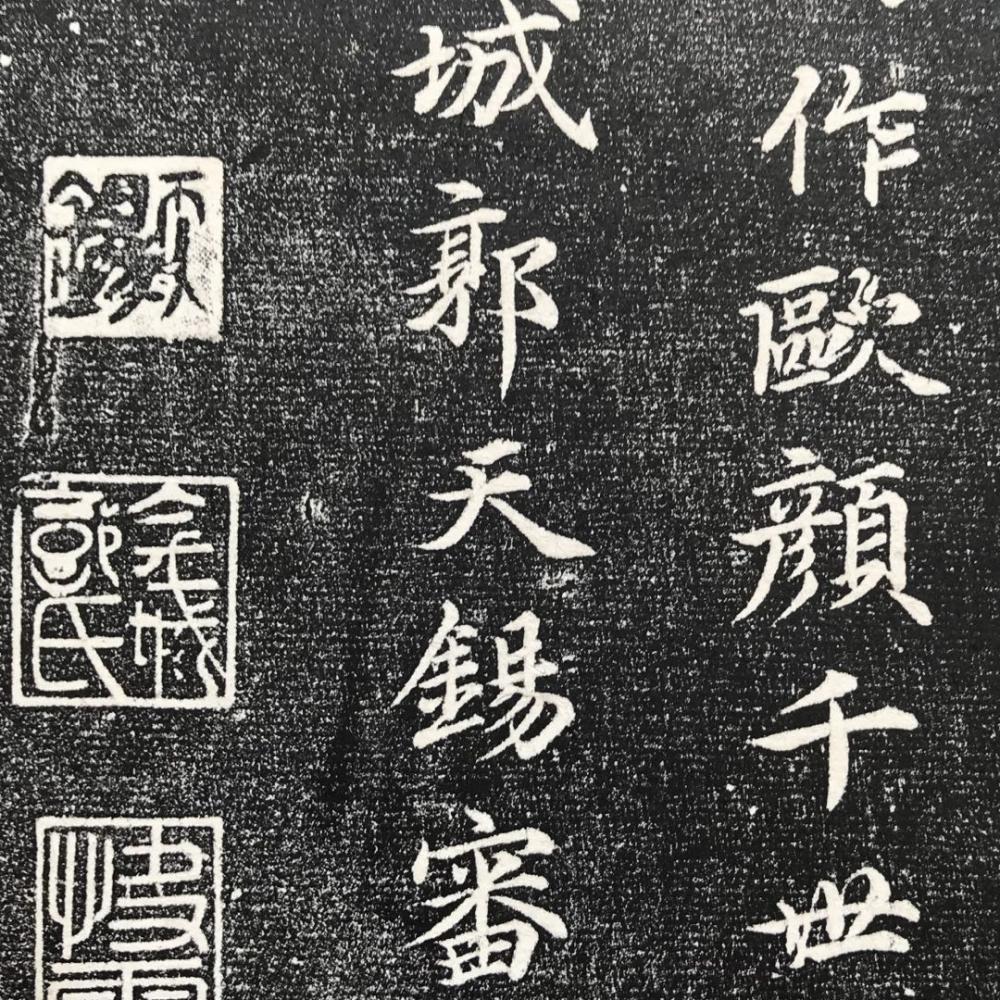 作歐顏千世
城郭天錫審
金城郭氏
快